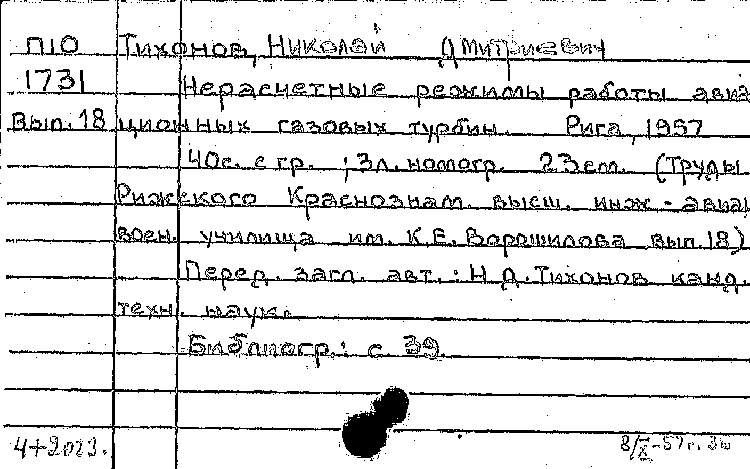 П10 Тихонов, Николай Дмитриевич
1731 Нерасчетные режимы работы авиа
Вып.18 ционных газовых турбин. Рига, 1957
40с. с гр. ; 3л. номогр. 23см. (Труды
Рижского Краснознам. высш. инж-авиа.
воен. училища им. К.Е. Ворошилова вып.18)
Перед. загл. авт.: Н.Д.Тихонов канд.
техн. наук.
Библиогр.: с 39
8/X-57г.